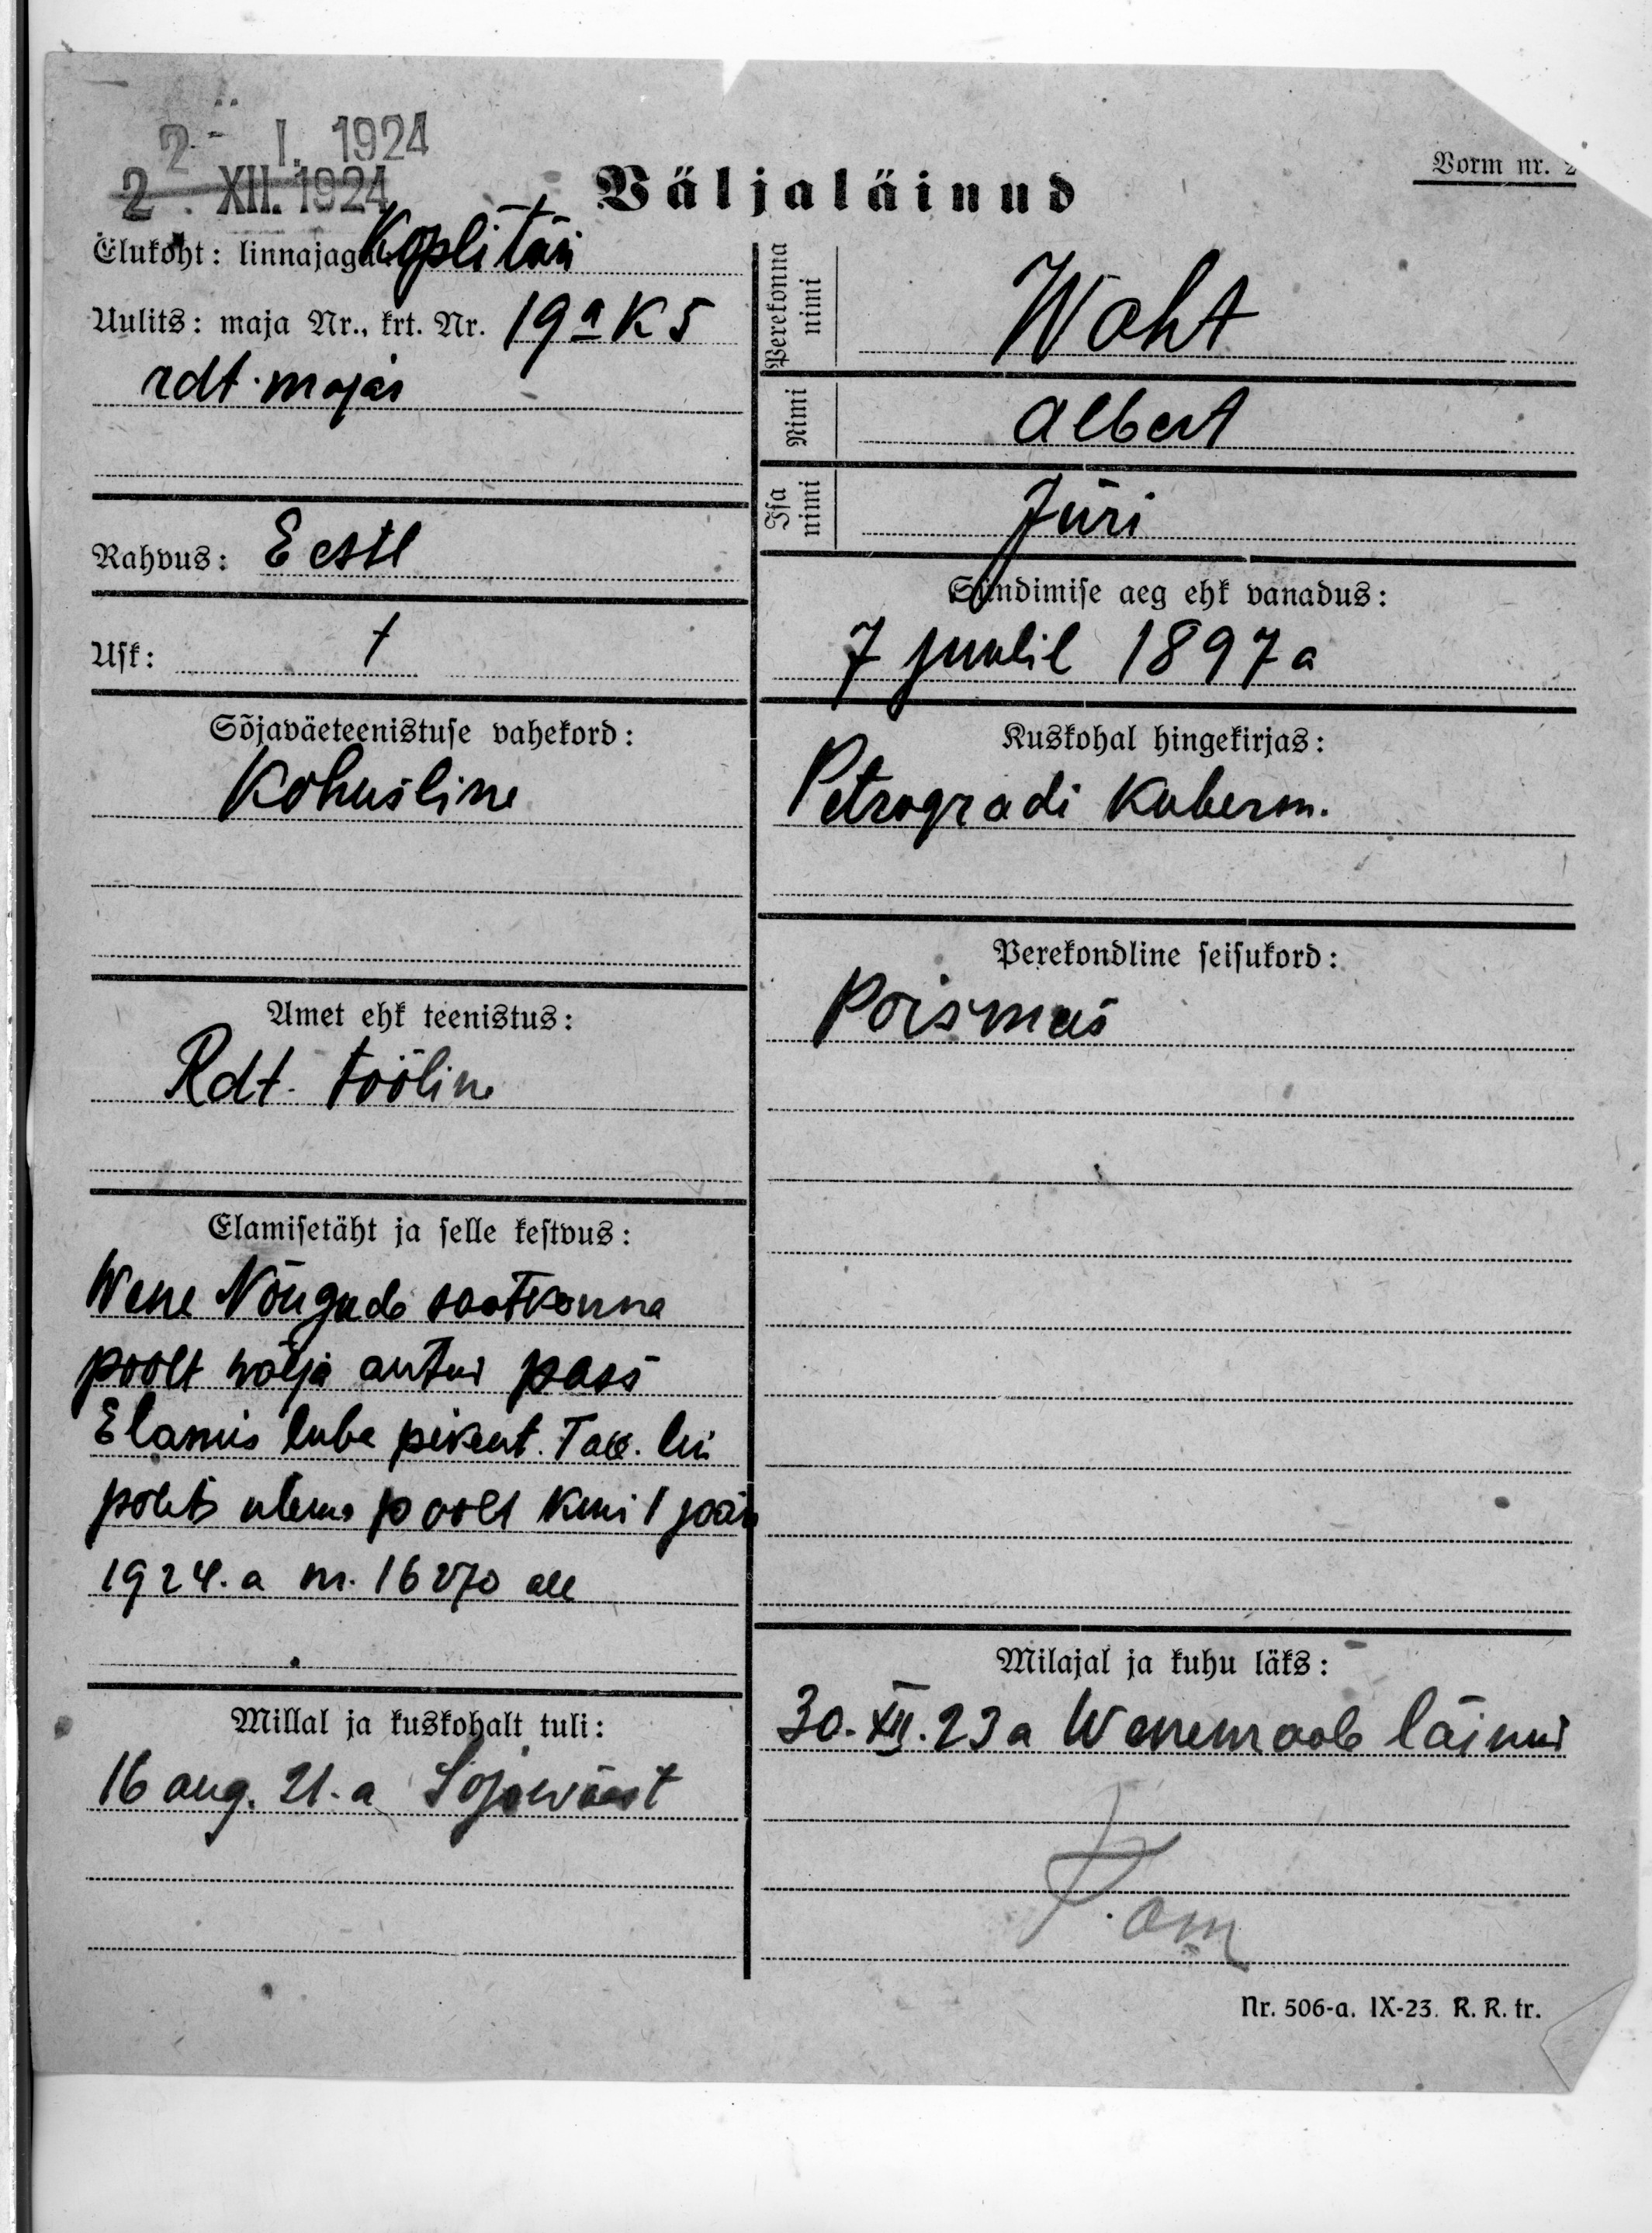 2 - I. 1924
2. XII. 1924
Väljaläinud
Vorm nr. 2
Elukoht: linnajagu Kopli tän
Uulits: maja Nr., krt. Nr. 19a K 5
rdt. majas
Rahvus: Eestl
Usk:
Sõjaväeteenistuse vahekord:
Kohusline
Amet ehk teenistus:
Rdt. tööline
Elamisetäht ja selle kestvus:
Wene Nõugude saatkonna
poolt wälja antud pass
Elamis luba pikent. Tall. lin
polits ülema poolt kuni 1 jaan
1924. a nr. 16270 all
Millal ja kuskohalt tuli:
16 aug. 21. a Sõjawäest
Perekonna nimi
Woht
Nimi
Albert
Isa nimi
Jüri
Sündimise aeg ehk vanadus:
7 juulil 1897 a
Kuskohal hingekirjas:
Petrogradi Kuberm.
Perekondline seisukord:
Poismees
Milajal ja kuhu läks:
30. XII. 23 a Wenemaale läinud
Nr. 506-a. IX-23. R. R. tr.